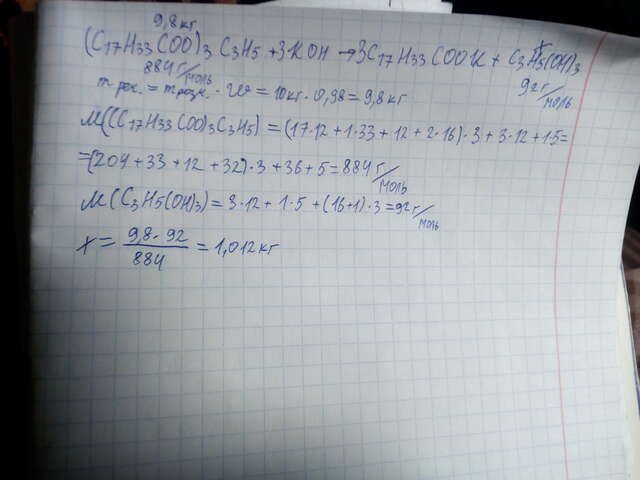 9,8 кг
(C17H33COO)3 C3H5 +3KOH →3C17H33COOK + C3H5(OH)3
x
884 г/моль
92 г/моль
m реч. = m розч. · W = 10кг · 0,98 = 9,8 кг
M((C17H33COO)3C3H5) = (17·12 + 1·33 + 12 + 2·16)·3 + 3·12 + 1·5=
=(204 + 33 + 12 + 32)·3 + 36 + 5 = 884 г/моль
M(C3H5(OH)3) = 3·12 + 1·5 + (16+1)·3 = 92 г/моль
x = 9,8·92/884 = 1,012 кг